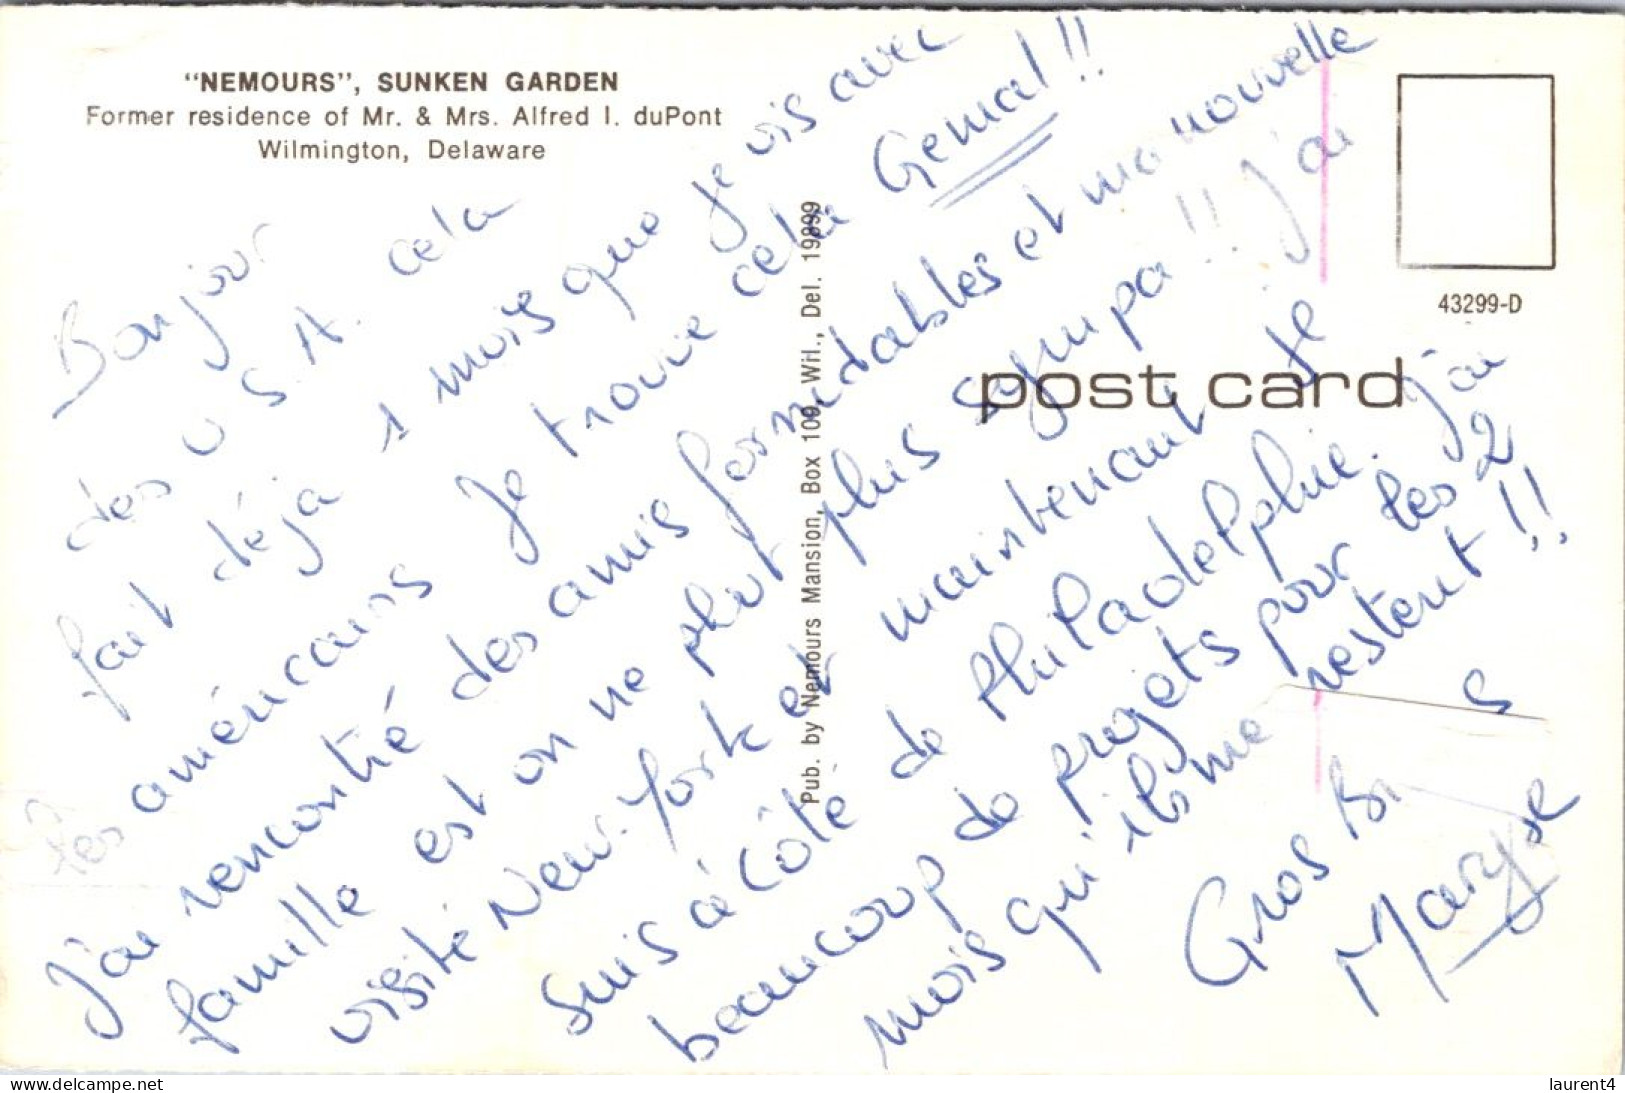 "NEMOURS", SUNKEN GARDEN
Former residence of Mr. & Mrs. Alfred I. duPont
Wilmington, Delaware
Bonjour
des U S. A. cela
fait déjà 1 mois que je vis avec
les américains Je trouve cela Genial !!
J'ai rencontré des amis formidables et ma nouvelle
famille est on ne plut plus sympa !! J'ai
visité New-York et maintenant Je
suis à côté de Philadelphie. J'ai
beaucoup de projets pour les 2
mois qu'ils me restent !!
Gros Bis
Maryse
Pub. by Nemours Mansion, Box 109, Wil., Del. 19899
43299-D
post card
les américains - delcampe.net
laurent4